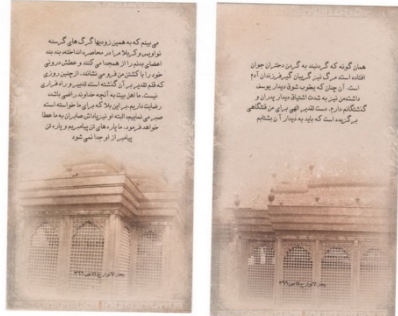 می بینم که به همین زودیها گرگ های گرسنه
نواویس و کربلا مرا در محاصره انداخته، بند بند
اعضای بدنم را از هم جدا می کنند و عطش درونی
خود را با کشتن من فرو می نشانند، از چنین روزی
که قلم تقدیر بر آن گذشته است تدبیر و راه فراری
نیست. ما اهل بیت به آنچه خداوند راضی باشد
رضایت داریم. بر این بلا که برای ما خواسته است
صبر می نماییم، البته او نیز پاداش صابران به ما عطا
خواهد فرمود. ما پاره های تن پیامبریم و پاره تن
پیامبر از او جدا نمی شود
همان گونه که گردنبند به گردن دختران جوان
افتاده است، مرگ نیز گریبان گیر فرزندان آدم
است. آن چنان که یعقوب شوق دیدار یوسف
داشت، من نیز به شدت اشتیاق دیدار پدران و
گذشتگانم دارم. دست تقدیر الهی برای من قتلگاهی
برگزیده است که باید به دیدار آن بشتابم